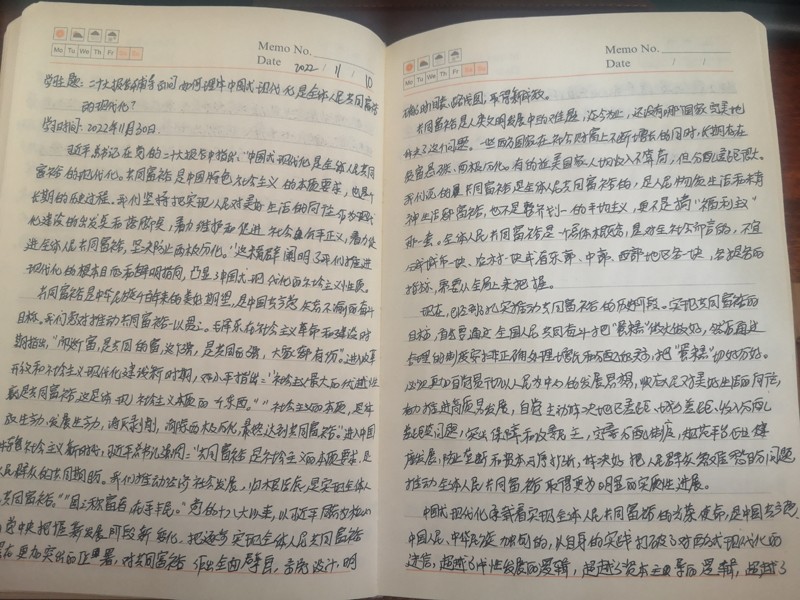 Mo Tu We Th Fr Sa Su
Memo No.
Date 2022 / 11 / 10
学习主题：二十大报告辅导百问 如何理解中国式现代化是全体人民共同富裕
的现代化？
学习时间：2022年11月30日.
习近平总书记在党的二十大报告中指出："中国式现代化是全体人民共同
富裕的现代化。共同富裕是中国特色社会主义的本质要求，也是个
长期的历史过程。我们坚持把实现人民对美好生活的向往作为现代
化建设的出发点和落脚点，着力维护和促进社会公平正义，着力促
进全体人民共同富裕，坚决防止两极分化。"这一阐明了我们推进
现代化的根本目的和鲜明指向，凸显中国式现代化的社会主义性质。
共同富裕是中华民族千百年来的美好期盼，是中国共产党矢志不渝的奋斗
目标。我们党对推动共同富裕一以贯之。毛泽东在社会主义革命和建设时
期指出，"而这个富，是共同的富，这个强，是共同的强，大家都有份"。进入改革
开放和社会主义现代化建设新时期，邓小平指出："社会主义最大的优越性
就是共同富裕，这是体现社会主义本质的一个东西。""社会主义的本质，是解
放生产力，发展生产力，消灭剥削，消除两极分化，最终达到共同富裕。"进入中国
特色社会主义新时代，习近平总书记强调："共同富裕是社会主义的本质要求，是
人民群众的共同期盼。我们推动经济社会发展，归根结底是要实现全体人
共同富裕。""国之称富者，在乎丰民。"党的十八大以来，以习近平同志为核心
党中央把握新发展阶段新变化，把逐步实现全体人民共同富裕
在更加突出的位置，对共同富裕作出全面部署，谋划设计，明
Mo Tu We Th Fr Sa Su
Memo No.
Date / /
确时间表、路线图，取得新成效。
共同富裕是人类文明发展中的难题，迄今为止，还没有哪个国家完美地
解决了这个问题。一些西方国家在社会财富上不断增长的同时，长期存在
贫富悬殊、两极分化。有的拉美国家人均收入不算高，但分配差距很大。
我们说的共同富裕是全体人民共同富裕，是人民物质生活和精
神生活都富裕，也不是整齐划一的平均主义，更不是搞"福利主义"
那一套。全体人民共同富裕是一个总体概念，是对全社会而言的，不宜
分成城市一块、农村一块或者东部、中部、西部地区各一块，各提各的
指标，要从全局上来把握。
现在，已经到了扎实推动共同富裕的历史阶段。实现共同富裕的
目标，首先要通过全国人民共同奋斗把"蛋糕"做大做好，然后通过
合理的制度安排正确处理增长和分配的关系，把"蛋糕"切好分好。
必须更加自觉贯彻以人民为中心的发展思想，顺应人民对美好生活的向往，
着力推进高质量发展，自觉主动解决地区差距、城乡差距、收入分配
差距问题，突出保障和改善民生，完善分配制度，规范平台企业健
康发展，防止垄断和资本无序扩张，解决好人民群众急难愁盼问题
推动全体人民共同富裕取得更为明显的实质性进展。
中国式现代化承载着实现全体人民共同富裕的光荣使命，是中国共产党
中国人民、中华民族的，以自身的实践打破了对西式现代化的
迷信，超越了片性发展的逻辑，超越了资本主导的逻辑，超越了